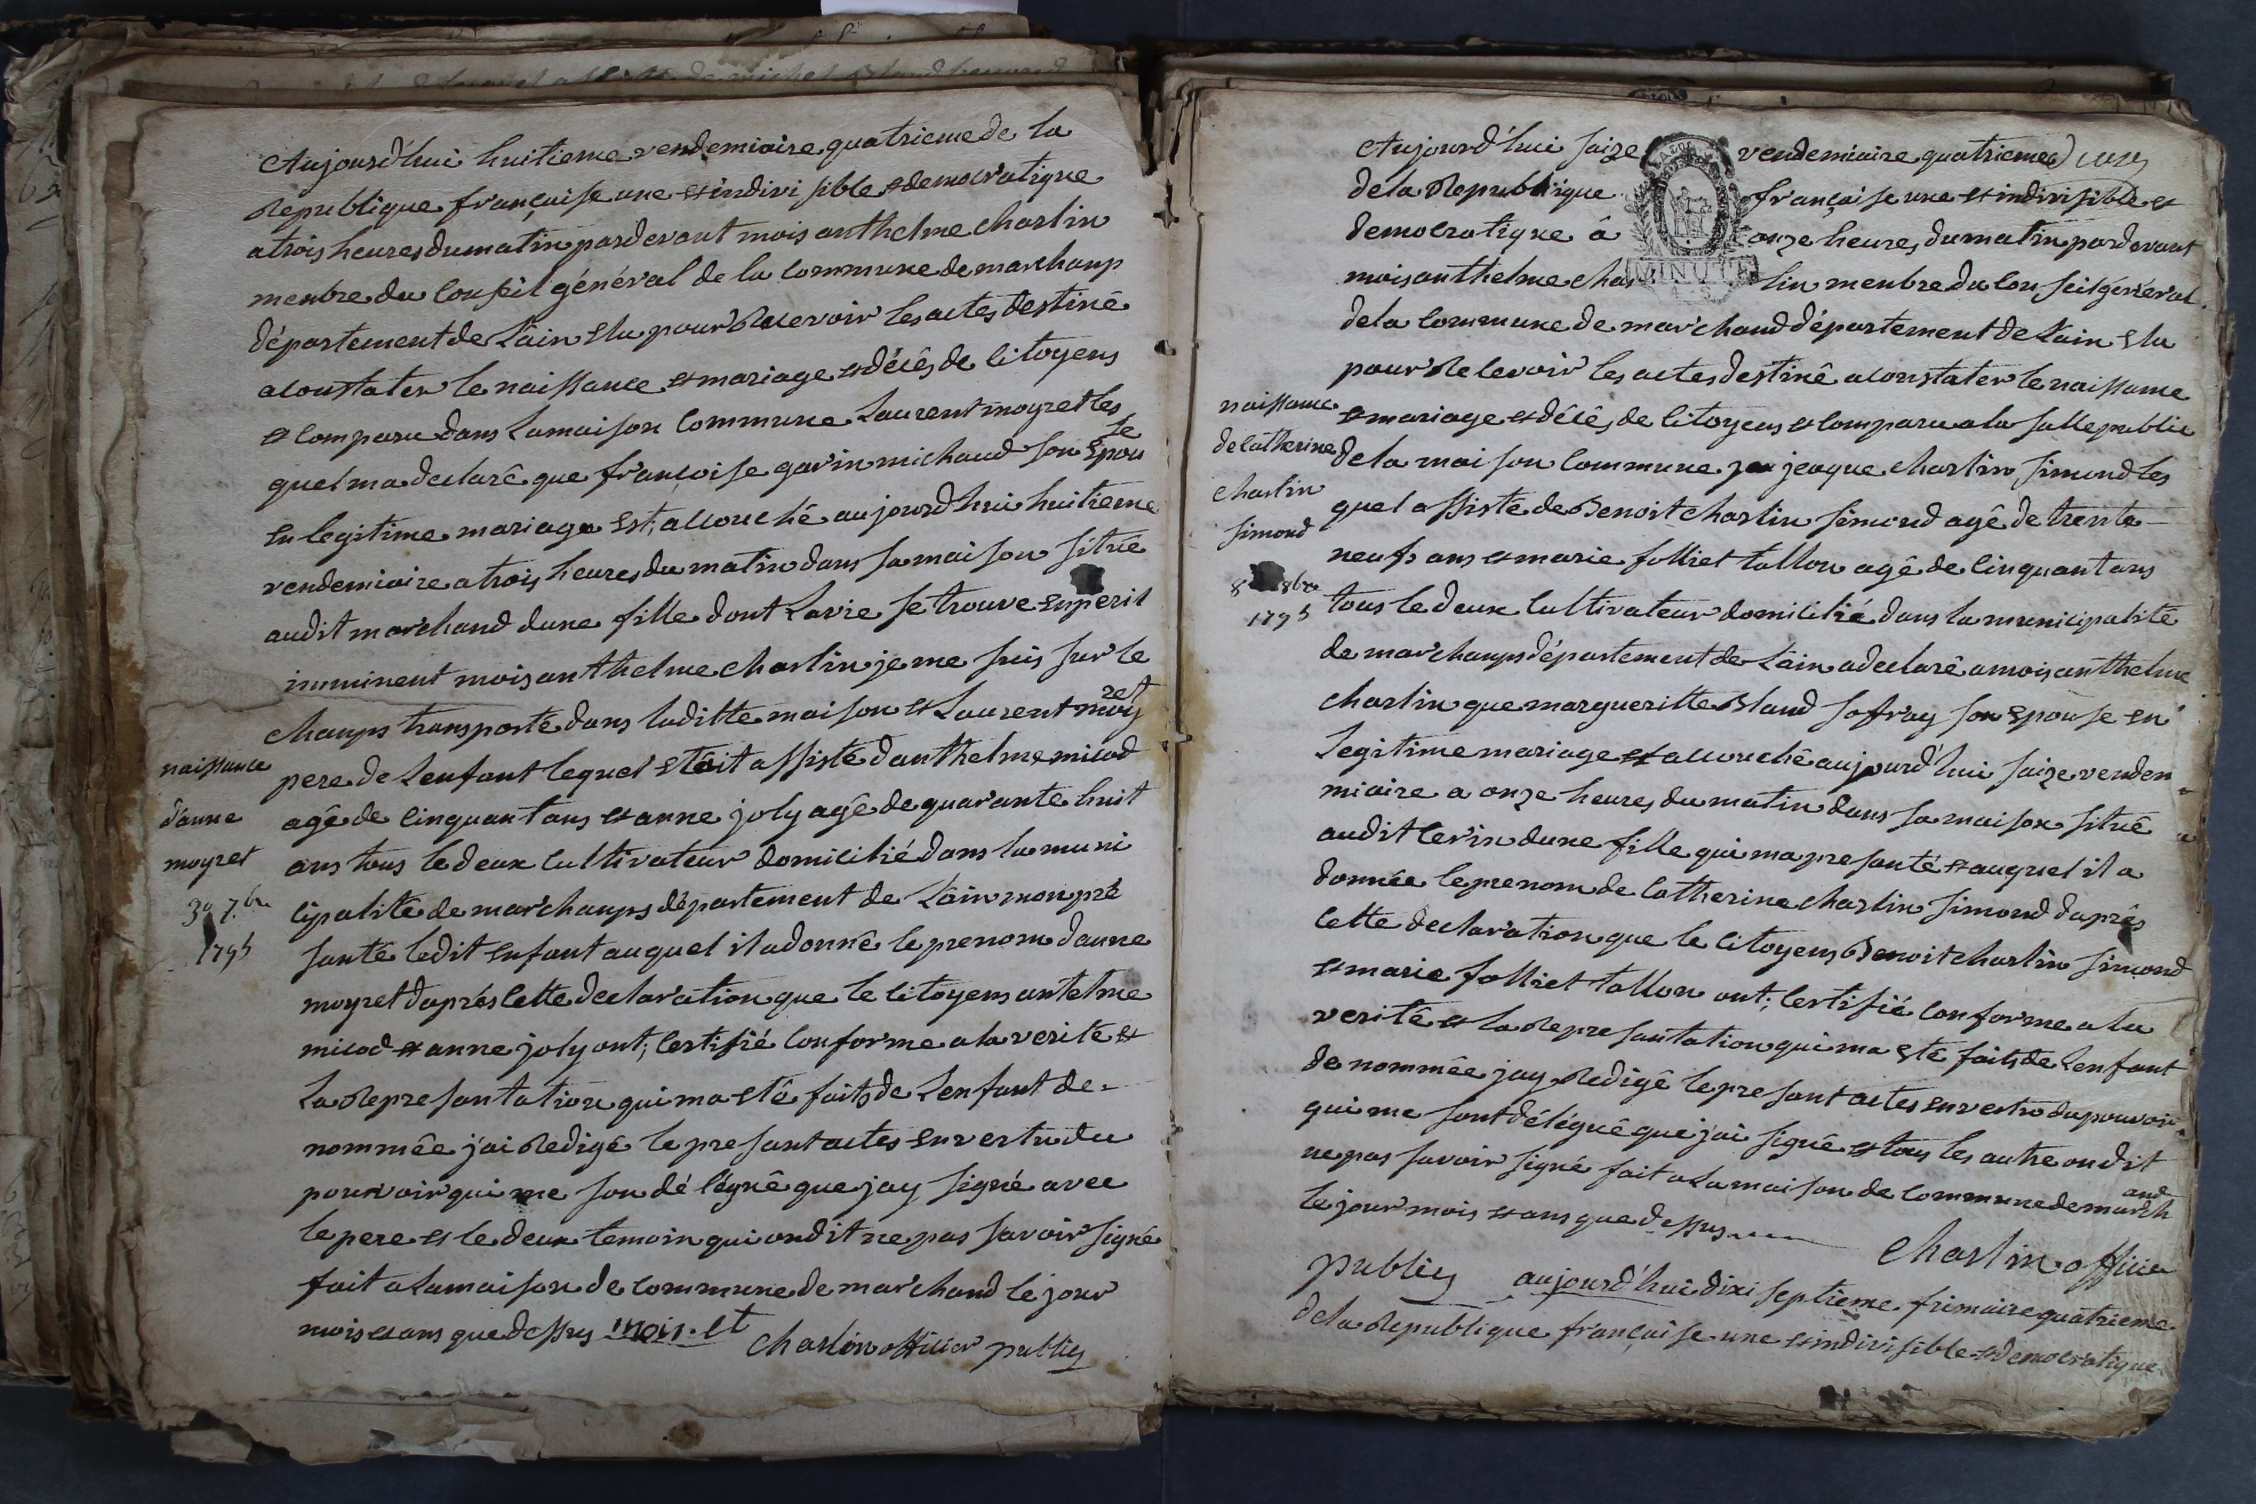 Aujourd'hui huitieme vendemiaire quatrieme de la
Republique française une et indivisible et democratique
a trois heures du matin pardevant mois anthelme charlin
menbre du Conseil général de la Commune de marchamp
département de Lain elu pour Recevoir les actes destiné
a Constater le naissance et mariage et décés de Citoyens
et Comparu dans Lamaison Commune Laurent moyret les
quel ma declaré que francoise gavin michaud son Epouse
en legitime mariage est; accouché aujourdhui huitieme
vendemiaire a trois heures du matin dans sa maison situé
audit marchand dune fille dont Lavie se trouve en peril
imminent mois anthelme charlin je me suis sur le
champs transporté dans laditte maison et Laurent moyret
naissance
d'anne
moyret
30 7.bre
1795
pere de Lenfant lequel etoit assisté danthelme micod
agé de Cinquant ans et anne joly agé de quarante huit
ans tous le deux Cultivateur domicilié dans la muni
Cipalité de marchamps département de Lain mon pré
santé ledit enfant auquel il a donné le prenom danne
moyret daprés Cette declaration que le Citoyens antelme
micod et anne joly ont; Certifié Conforme a la verité et
La Represantation qui ma eté faits de Lenfant de-
nommée j'ai Redigé le presant actes en vertu du
pouvoir qui me son délégué que jay signé avec
le pere et le deux temoin qui ondit ne pas savoir signé
fait a Lamaison de Commune de marchand le jour
mois et ans que dessus moiret
Charlin officier publiq
Aujourd'hui saize vendemiaire quatrieme
de la Republique française une et indivisible et
democratique á onze heures du matin pardevant
MINUTE
mois anthelme charlin menbre du Conseil général
de la Commune de marchand département de Lain elu
pour Recevoir les actes destiné a Constater le naissance
et mariage et décés de Citoyens et Comparu a la salle public
naissance
de Catherine
Charlin
simond
8 8bre
1795
de la maison Commune jeaque charlin simond les
quel assisté de Benoit charlin simond agé de trente-
neuf ans et marie folliet tallon agé de Cinquant ans
tous le deux Cultivateur domicilié dans la municipalité
de marchamps département de Lain a declaré a mois anthelme
charlin que margueritte Bland saffray son epouse en
Legitime mariage et accouché aujourd'hui saize venden
miaire a onze heures du matin dans sa maison situé
audit Cerin dune fille qui ma presanté et auquel il a
donnée le prenom de Catherine charlin simond daprés
Cette declaration que le Citoyens Benoit charlin simond
et marie folliet tallon ont; Certifié Conforme a la
verité et la Represantation qui ma eté faits de Lenfant
de nommée jay Redigé le presant actes en vertu du pouvoir
qui me sont délégué que j'ai signé et tous les autre ondit
ne pas savoir signé fait a La maison de Commune de marchand
le jour mois et ans que dessus
Charlin officier
publiq aujourd'hui dixi septieme frimaire quatrieme
de la Republique française une et indivisible et democratique